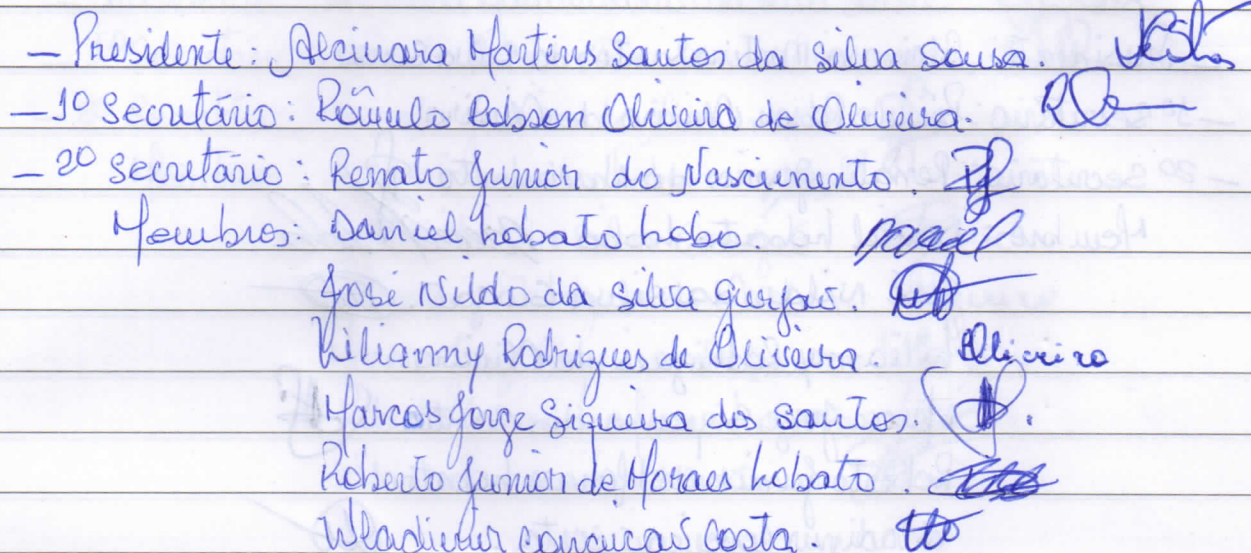 - Presidente: Alcinara Martins Santos da Silva Sousa.
- 1º Secretário: Rômulo Robson Oliveira de Oliveira.
- 2º Secretário: Renato Junior do Nascimento.
Membros: Daniel Lobato Lobo. Daniel
José Nildo da Silva Gurjão.
Lilianny Rodrigues de Oliveira. Oliveira
Marcos Jorge Siqueira dos Santos.
Roberto Junior de Moraes Lobato.
Wladimir Conceição Costa.